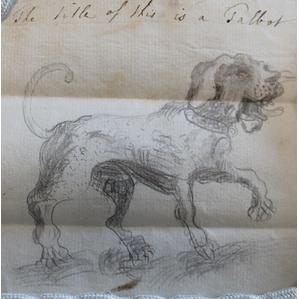 the title of this is a Talbot